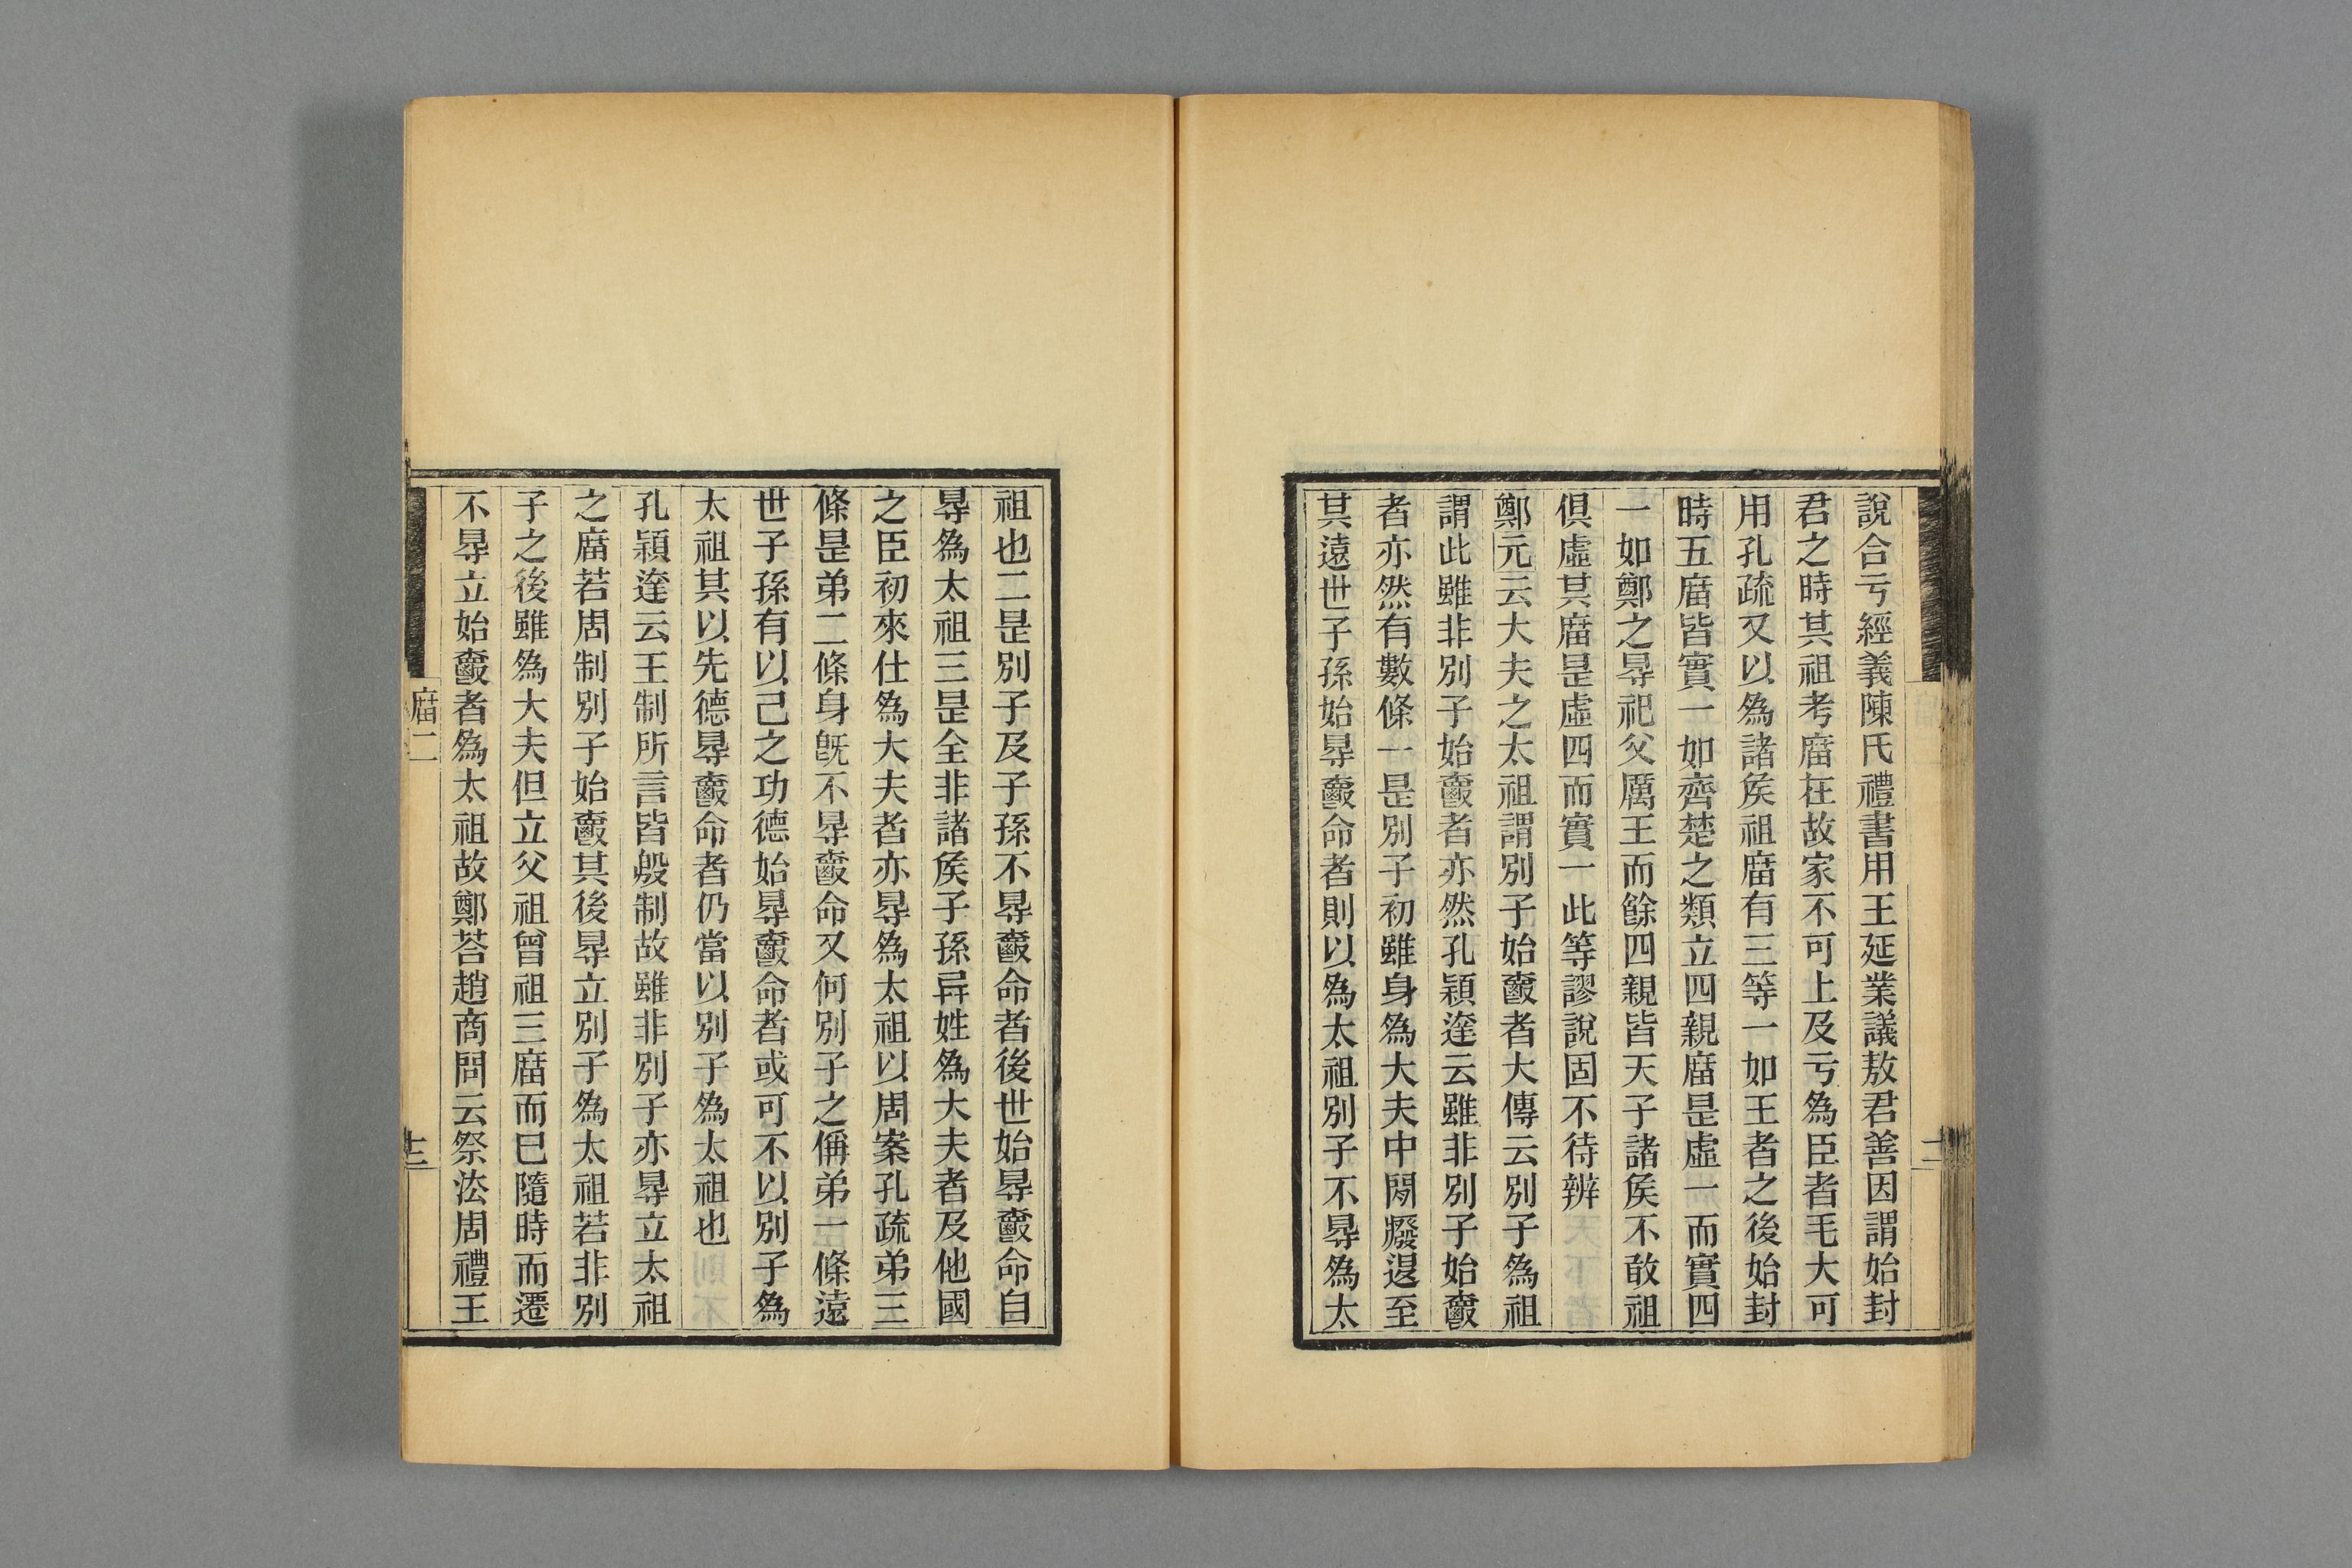 說合亏經義陳氏禮書用王延業議敖君善因謂始封
君之時其祖考庿在故家不可上及亏爲臣者毛大可
用孔疏又以爲諸矦祖庿有三等一如王者之後始封
時五庿皆實一如齊楚之類立四親庿昰虛一而實四
一如鄭之㝵祀父厲王而餘四親皆天子諸矦不敢祖
俱虛其庿昰虛四而實一此等謬說固不待辨
鄭元云大夫之太祖謂別子始𤕌者大傳云別子爲祖
謂此雖非別子始𤕌者亦然孔穎達云雖非別子始𤕌
者亦然有數條一昰別子初雖身爲大夫中閒廢退至
其遠世子孫始㝵𤕌命者則以爲太祖別子不㝵爲太
祖也二昰別子及子孫不㝵𤕌命者後世始㝵𤕌命自
㝵爲太祖三昰全非諸矦子孫异姓爲大夫者及他國
之臣初來仕爲大夫者亦㝵爲太祖以周案孔疏弟三
條昰弟二條身旣不㝵𤕌命又何別子之偁弟一條遠
世子孫有以己之功德始㝵𤕌命者或可不以別子爲
太祖其以先德㝵𤕌命者仍當以別子爲太祖也
孔穎達云王制所言皆殷制故雖非別子亦㝵立太祖
之庿若周制別子始𤕌其後㝵立別子爲太祖若非別
子之後雖爲大夫但立父祖曾祖三庿而已隨時而遷
不㝵立始𤕌者爲太祖故鄭荅趙商問云祭法周禮王
庿二